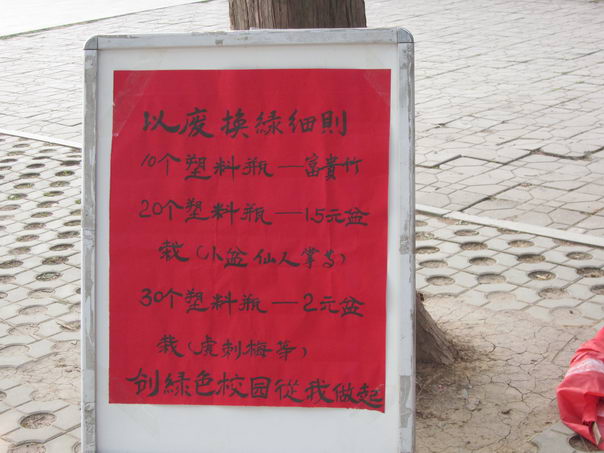 以废换緑细則
10个塑料瓶—富貴竹
20个塑料瓶—1.5元盆
栽(小盆仙人掌等)
30个塑料瓶—2元盆
栽(虎刺梅等)
创緑色校园從我做起